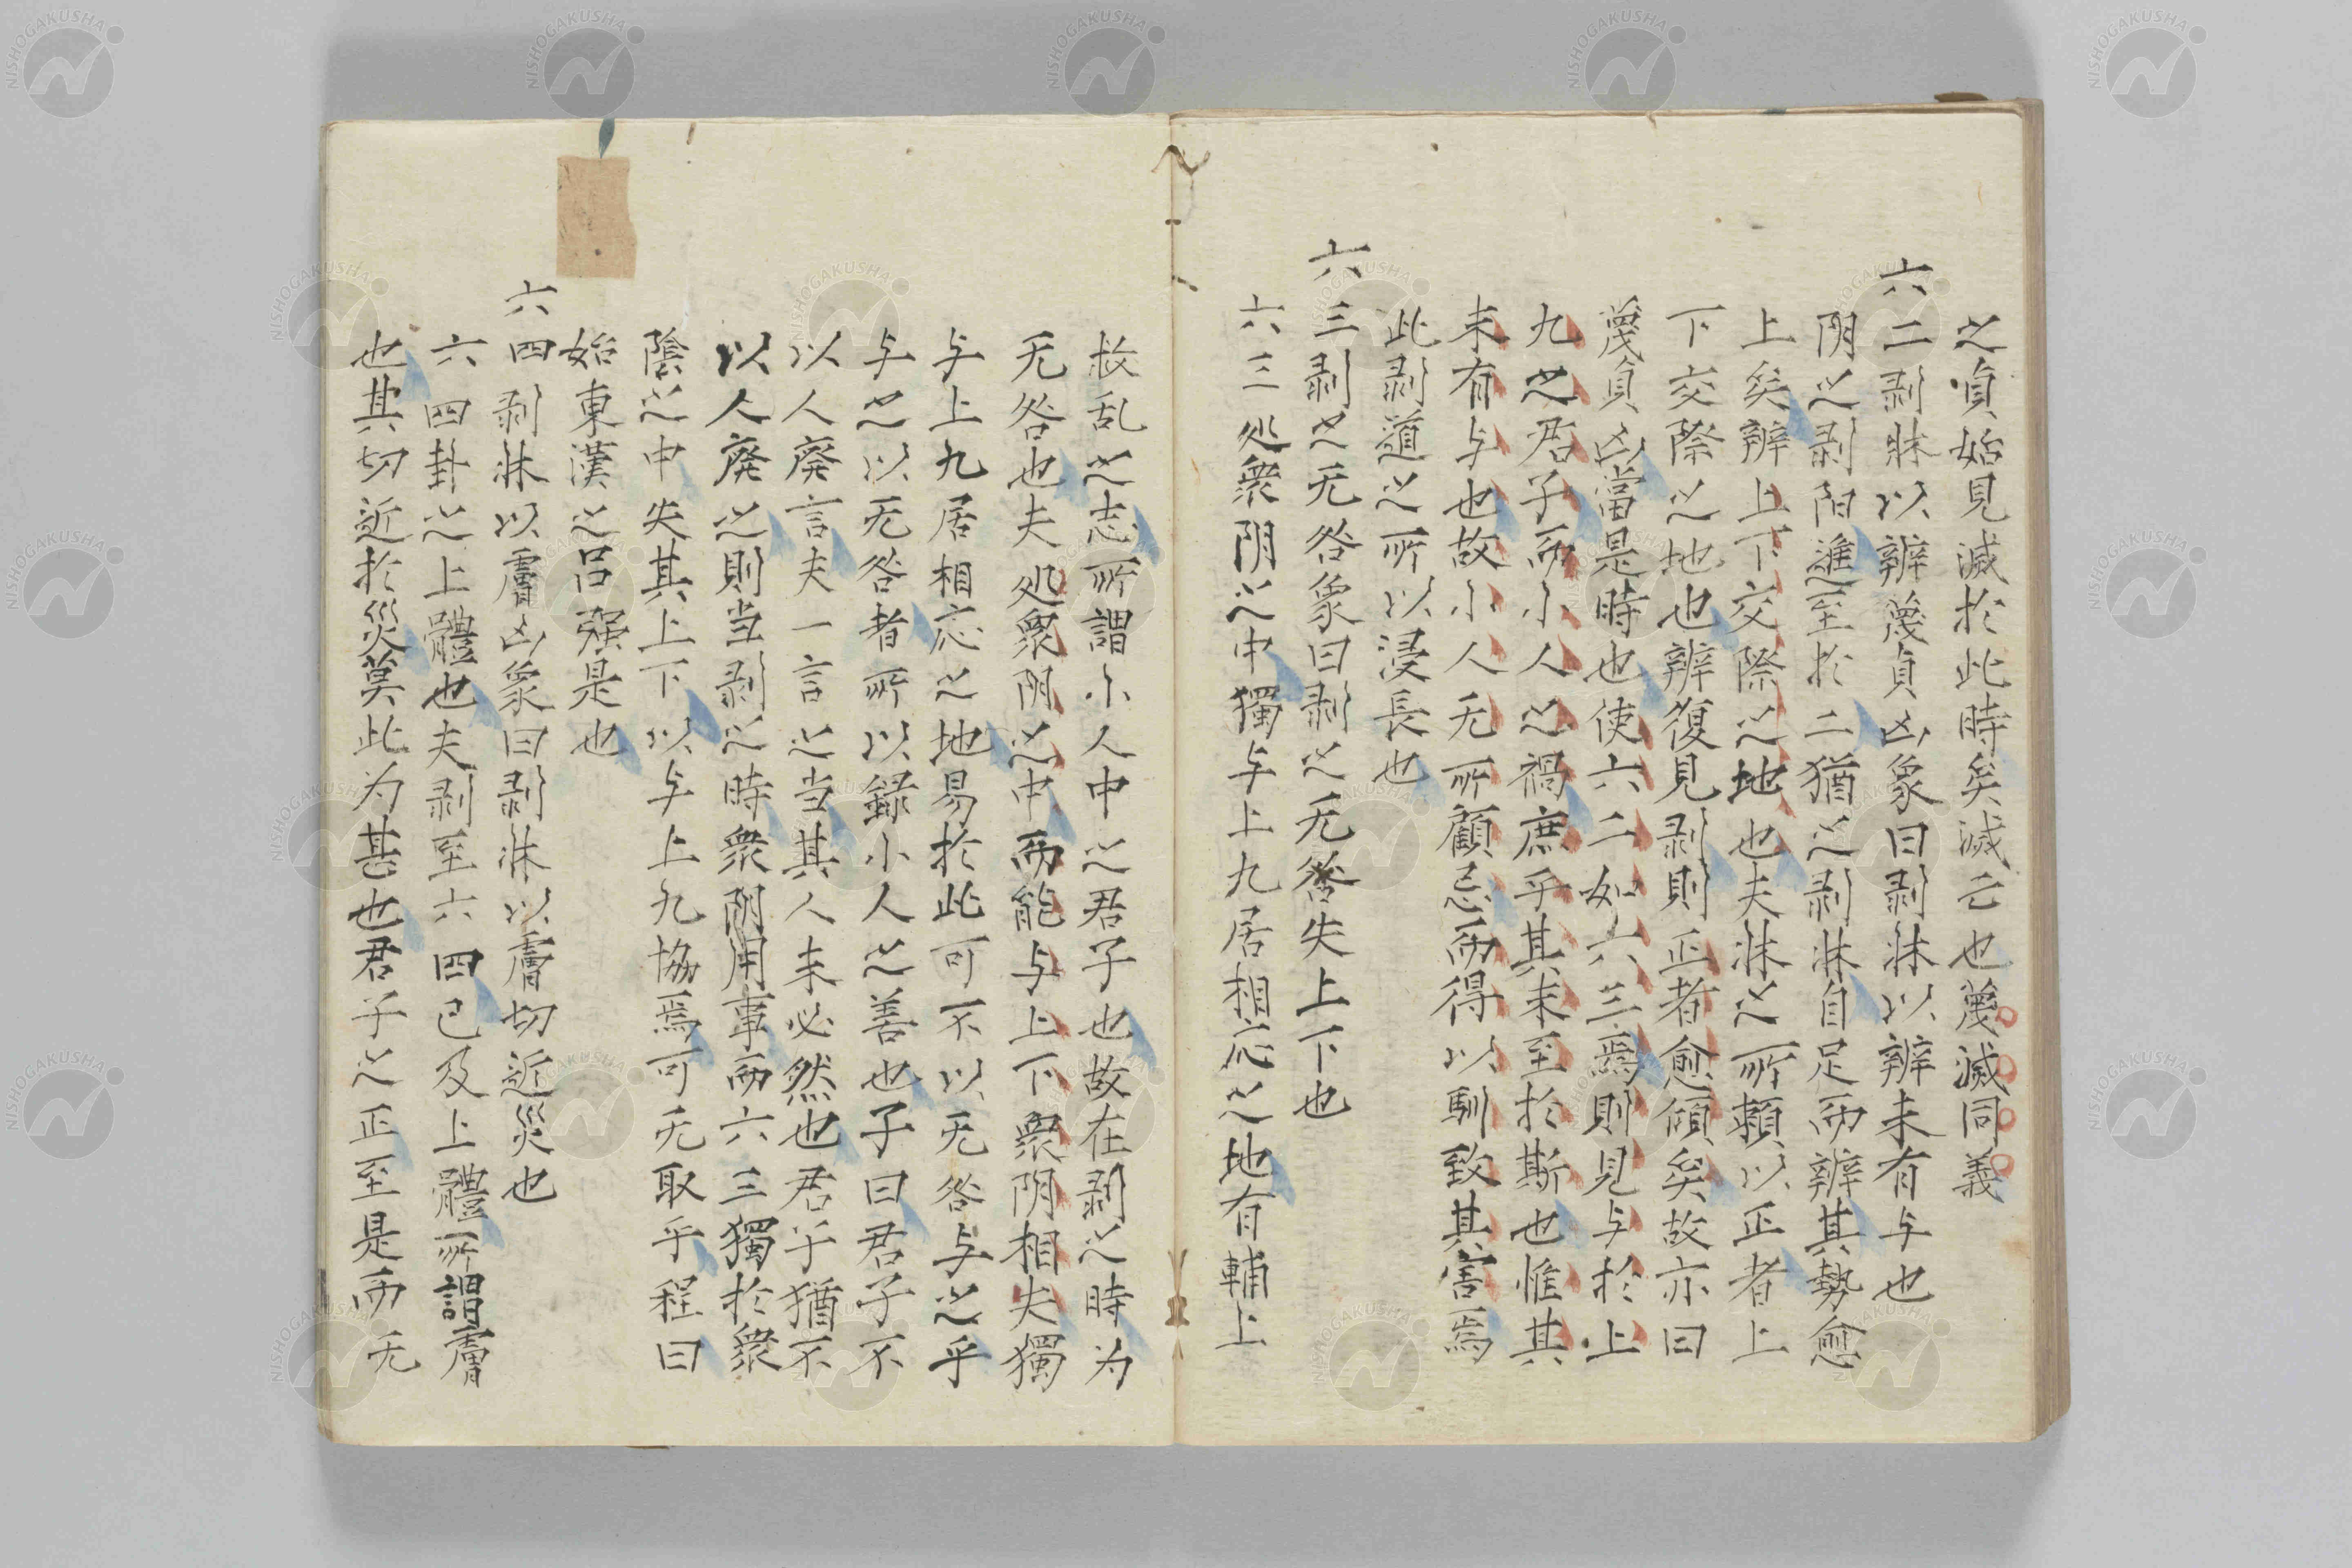 之貞始見滅於此時矣滅云也蔑滅同義
六二剥牀以辨蔑貞凶象曰剥牀以辨未有与也
阴之剥阳進至於二猶之剥牀自足而辨其勢愈
上矣辨上下交際之地也夫牀之所頼以正者上
下交際之地也辨復見剥則正者愈傾矣故亦曰
蔑貞凶當是時也使六二如六三焉則見与於上
九之君子而小人之禍庶乎其未至於斯也惟其
未有与也故小人无所顧忌而得以馴致其害焉
此剥道之所以浸長也
六三剥之无咎象曰剥之无咎失上下也
六三処衆阴之中獨与上九居相応之地有輔上
救乱之志所謂小人中之君子也故在剥之時为
无咎也夫処衆阴之中而能与上下衆阴相失獨
与上九居相応之地易於此可不以无咎与之乎
与之以无咎者所以録小人之善也子曰君子不
以人廃言夫一言之当其人未必然也君子猶不
以人廃之則当剥之時衆阴用事而六三獨於衆
陰之中失其上下以与上九協焉可无取乎程曰
始東漢之呂强是也
六四剥牀以膚凶象曰剥牀以膚切近災也
六四卦之上體也夫剥至六四已及上體所謂膚
也其切近於災莫此为甚也君子之正至是而无
NISHOGAKUSHA